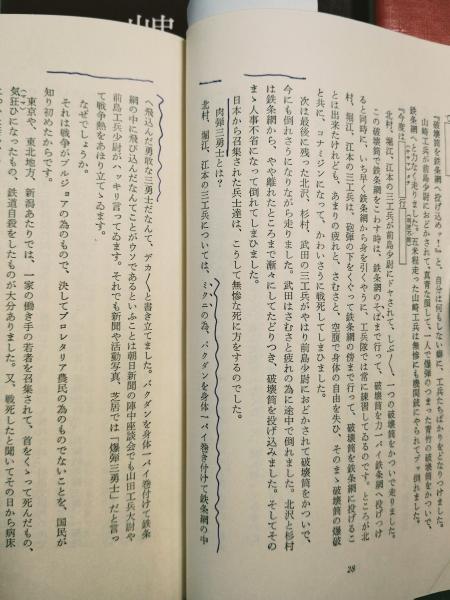 『破壊筒を鉄條網へ投げ込めッ！』と、自分は何もしない癖に、工兵たちばかりをどなりつけました。
山崎工兵が前島少尉におどかされて、真青な顔して、一人で爆弾のつまった青竹の破壊筒をかついで、
鉄條網へと力なく走りました。五米程走った山崎工兵は無惨にも機関銃にやられてブッ倒れました。
『今度は
北村、堀江、江本の三工兵が前島少尉にドヤされて、しぶしぶ、一つの破壊筒をかついで走りました。
この破壊筒で鉄條網をこわす時は、鉄條網のそばまで行って、破壊筒を力一パイ鉄條網へ投げつけ
ると同時に、いち早く鉄條網から身を引くやうに、工兵隊では常に練習してゐるのです。ところが北
村、堀江、江本の三工兵は、砲弾の下をくゞって鉄條網の傍まで行って、破壊筒を鉄條網に投げるこ
とは出来たけれども、あまりの疲れと、さむさと、空腹で身体の自由を失ひ、そのまゝ破壊筒の爆破
と共に、コナミジンになって、かわいさうに戦死してしまひました。
次は最後に残った北沢、杉村、武田の三工兵がやはり前島少尉におどかされて破壊筒をかついで、
今にも倒れさうになりながら走りました。武田はさむさと疲れの為に途中で倒れました。北沢と杉村
は鉄條網から、やゝ離れたところまで漸々にしてたどりつき、破壊筒を投げ込みました。そしてその
まゝ人事不省になって倒れてしまひました。
日本から召集された兵士達は、こうして無惨な死に方をするのでした。
肉弾三勇士とは？
北村、堀江、江本の三工兵については、ミクニの為、バクダンを身体一パイ巻き付けて鉄條網の中
28
へ飛込んだ勇敢な三勇士だなんて、デカデカと書き立てました。バクダンを身体一パイ巻付けて鉄条
網の中に飛び込んだなんてことがウソであるといふことは朝日新聞の陣中座談会でも山田工兵大尉や
前島工兵少尉がハッキリ言ってゐます。それでも新聞や活動写真、芝居では「爆弾三勇士」だと言っ
て戦争熱をあほり立てゝゐます。
なぜでしょうか。
それは戦争がブルジョアの為のもので、決してプロレタリア農民の為のものでないことを、国民が
知り初めたからです。
東京や、東北地方、新潟あたりでは、一家の働き手の若者を召集されて、首をくゝって死んだもの、
気狂ひになったもの、鉄道自殺をしたものが大分ありました。又、戦死したと聞いてその日から病床